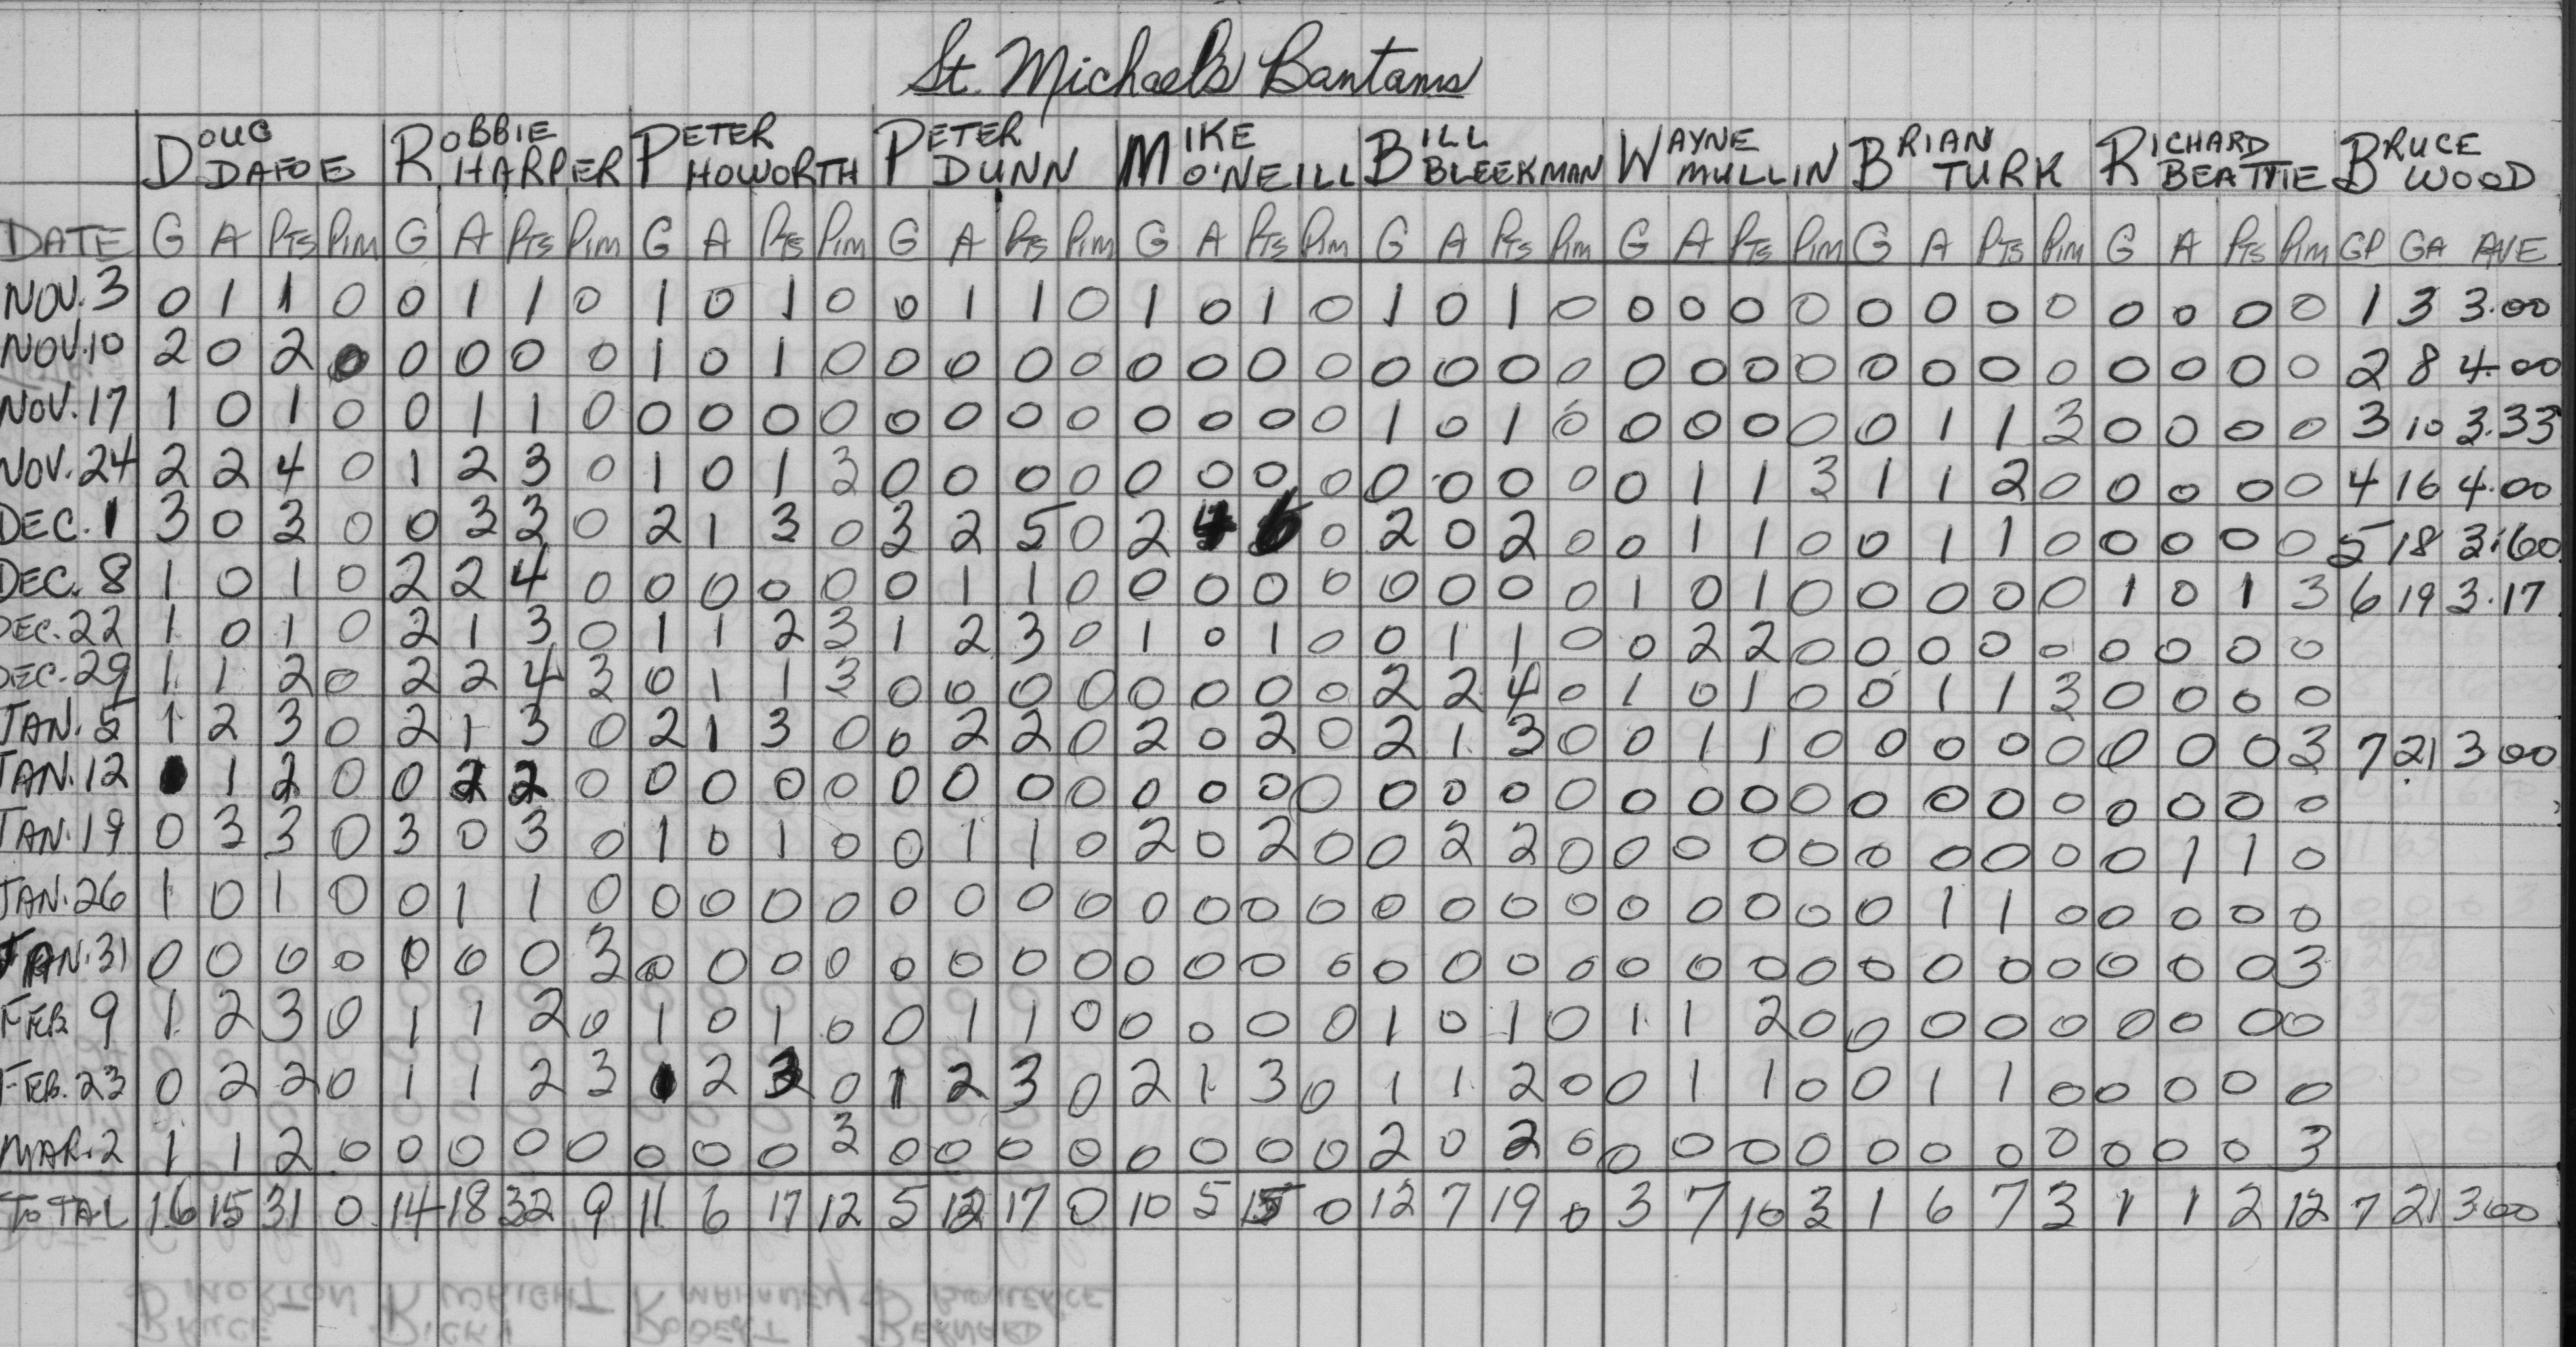 St. Michael's Bantams
DOUG DAFOE ROBBIE HARPER PETER HOWORTH PETER DUNN MIKE O'NEILL BILL BLEEKMAN WAYNE MULLIN BRIAN TURK RICHARD BEATTIE BRUCE WOOD
DATE G A PTS PIM G A PTS PIM G A PTS PIM G A PTS PIM G A PTS PIM G A PTS PIM G A PTS PIM G A PTS PIM G A PTS PIM GP GA AVE
NOV. 3 0 1 1 0 0 1 1 0 1 0 1 0 0 1 1 0 1 0 1 0 1 0 1 0 0 0 0 0 0 0 0 0 0 0 0 0 1 3 3.00
NOV. 10 2 0 2 0 0 0 0 0 1 0 1 0 0 0 0 0 0 0 0 0 0 0 0 0 0 0 0 0 0 0 0 0 0 0 0 0 2 8 4.00
NOV. 17 1 0 1 0 0 1 1 0 0 0 0 0 0 0 0 0 0 0 0 0 1 0 1 0 0 0 0 0 0 1 1 3 0 0 0 0 3 10 3.33
NOV. 24 2 2 4 0 1 2 3 0 1 0 1 3 0 0 0 0 0 0 0 0 0 0 0 0 0 1 1 3 1 1 2 0 0 0 0 0 4 16 4.00
DEC. 1 3 0 3 0 0 3 3 0 2 1 3 0 3 2 5 0 2 4 6 0 2 0 2 0 0 1 1 0 0 1 1 0 0 0 0 0 5 18 3.60
DEC. 8 1 0 1 0 2 2 4 0 0 0 0 0 0 1 1 0 0 0 0 0 0 0 0 0 1 0 1 0 0 0 0 0 1 0 1 3 6 19 3.17
DEC. 22 1 0 1 0 2 1 3 0 1 1 2 3 1 2 3 0 1 0 1 0 0 1 1 0 0 2 2 0 0 0 0 0 0 0 0 0
DEC. 29 1 1 2 0 2 2 4 3 0 1 1 3 0 0 0 0 0 0 0 0 2 2 4 0 1 0 1 0 0 1 1 3 0 0 0 0
JAN. 5 1 2 3 0 2 1 3 0 2 1 3 0 0 2 2 0 2 0 2 0 2 1 3 0 0 1 1 0 0 0 0 0 0 0 0 3 7 21 3.00
JAN. 12 1 2 0 0 2 2 0 0 0 0 0 0 0 0 0 0 0 0 0 0 0 0 0 0 0 0 0 0 0 0 0 0 0 0 0
JAN. 19 0 3 3 0 3 0 3 0 1 0 1 0 0 1 1 0 2 0 2 0 0 2 2 0 0 0 0 0 0 0 0 0 0 1 1 0
JAN. 26 1 0 1 0 0 1 1 0 0 0 0 0 0 0 0 0 0 0 0 0 0 0 0 0 0 0 0 0 0 1 1 0 0 0 0 0
JAN. 31 0 0 0 0 0 0 0 3 0 0 0 0 0 0 0 0 0 0 0 0 0 0 0 0 0 0 0 0 0 0 0 0 0 0 0 3
FEB. 9 1 2 3 0 1 1 2 0 1 0 1 0 0 1 1 0 0 0 0 0 1 0 1 0 1 1 2 0 0 0 0 0 0 0 0 0
FEB. 23 0 2 2 0 1 1 2 3 1 2 3 0 1 2 3 0 2 1 3 0 1 1 2 0 0 1 1 0 0 1 1 0 0 0 0 0
MAR. 2 1 1 2 0 0 0 0 0 0 0 0 3 0 0 0 0 0 0 0 0 2 0 2 0 0 0 0 0 0 0 0 0 0 0 0 3
TOTAL 16 15 31 0 14 18 32 9 11 6 17 12 5 12 17 0 10 5 15 0 12 7 19 0 3 7 10 3 1 6 7 3 1 1 2 12 7 21 3.00